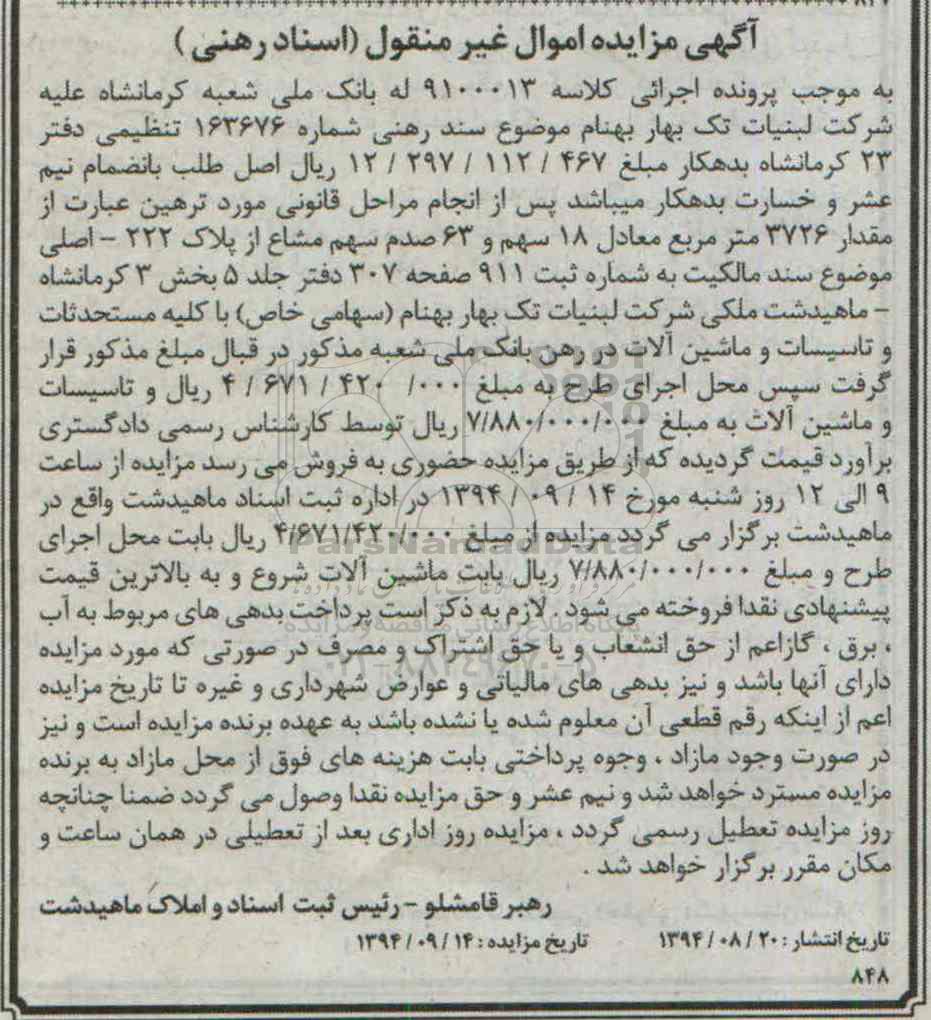 آگهی مزایده اموال غیر منقول (اسناد رهنی )
به موجب پرونده اجرائی کلاسه ۹۱۰۰۰۱۳ له بانک ملی شعبه کرمانشاه علیه
شرکت لبنیات تک بهار بهنام موضوع سند رهنی شماره ۱۶۳۶۷۶ تنظیمی دفتر
۲۳ کرمانشاه بدهکار مبلغ ۴۶۷ / ۱۱۲ / ۲۹۷ / ۱۲ ریال اصل طلب بانضمام نیم
عشر و خسارت بدهکار میباشد پس از انجام مراحل قانونی مورد ترهین عبارت از
مقدار ۳۷۲۶ متر مربع معادل ۱۸ سهم و ۶۳ صدم سهم مشاع از پلاک ۲۲۲ - اصلی
موضوع سند مالکیت به شماره ثبت ۹۱۱ صفحه ۳۰۷ دفتر جلد ۵ بخش ۳ کرمانشاه
- ماهیدشت ملکی شرکت لبنیات تک بهار بهنام (سهامی خاص) با کلیه مستحدثات
و تاسیسات و ماشین آلات در رهن بانک ملی شعبه مذکور در قبال مبلغ مذکور قرار
گرفت سپس محل اجرای طرح به مبلغ ۰۰۰/ ۴۲۰ / ۶۷۱ / ۴ ریال و تاسیسات
و ماشین آلات به مبلغ ۷/۸۸۰/۰۰۰/۰۰۰ ریال توسط کارشناس رسمی دادگستری
برآورد قیمت گردیده که از طریق مزایده حضوری به فروش می رسد مزایده از ساعت
۹ الی ۱۲ روز شنبه مورخ ۱۴ / ۰۹ / ۱۳۹۴ در اداره ثبت اسناد ماهیدشت واقع در
ماهیدشت برگزار می گردد مزایده از مبلغ ۴/۶۷۱/۴۲۰/۰۰۰ ریال بابت محل اجرای
طرح و مبلغ ۷/۸۸۰/۰۰۰/۰۰۰ ریال بابت ماشین آلات شروع و به بالاترین قیمت
پیشنهادی نقدا فروخته می شود . لازم به ذکر است پرداخت بدهی های مربوط به آب
، برق ، گازاعم از حق انشعاب و یا حق اشتراک و مصرف در صورتی که مورد مزایده
دارای آنها باشد و نیز بدهی های مالیاتی و عوارض شهرداری و غیره تا تاریخ مزایده
اعم از اینکه رقم قطعی آن معلوم شده یا نشده باشد به عهده برنده مزایده است و نیز
در صورت وجود مازاد ، وجوه پرداختی بابت هزینه های فوق از محل مازاد به برنده
مزایده مسترد خواهد شد و نیم عشر و حق مزایده نقدا وصول می گردد ضمنا چنانچه
روز مزایده تعطیل رسمی گردد ، مزایده روز اداری بعد از تعطیلی در همان ساعت و
مکان مقرر برگزار خواهد شد .
رهبر قامشلو - رئیس ثبت اسناد و املاک ماهیدشت
تاریخ انتشار : ۲۰ / ۰۸ / ۱۳۹۴ تاریخ مزایده : ۱۴ / ۰۹ / ۱۳۹۴
۸۴۸
ParsNamadData